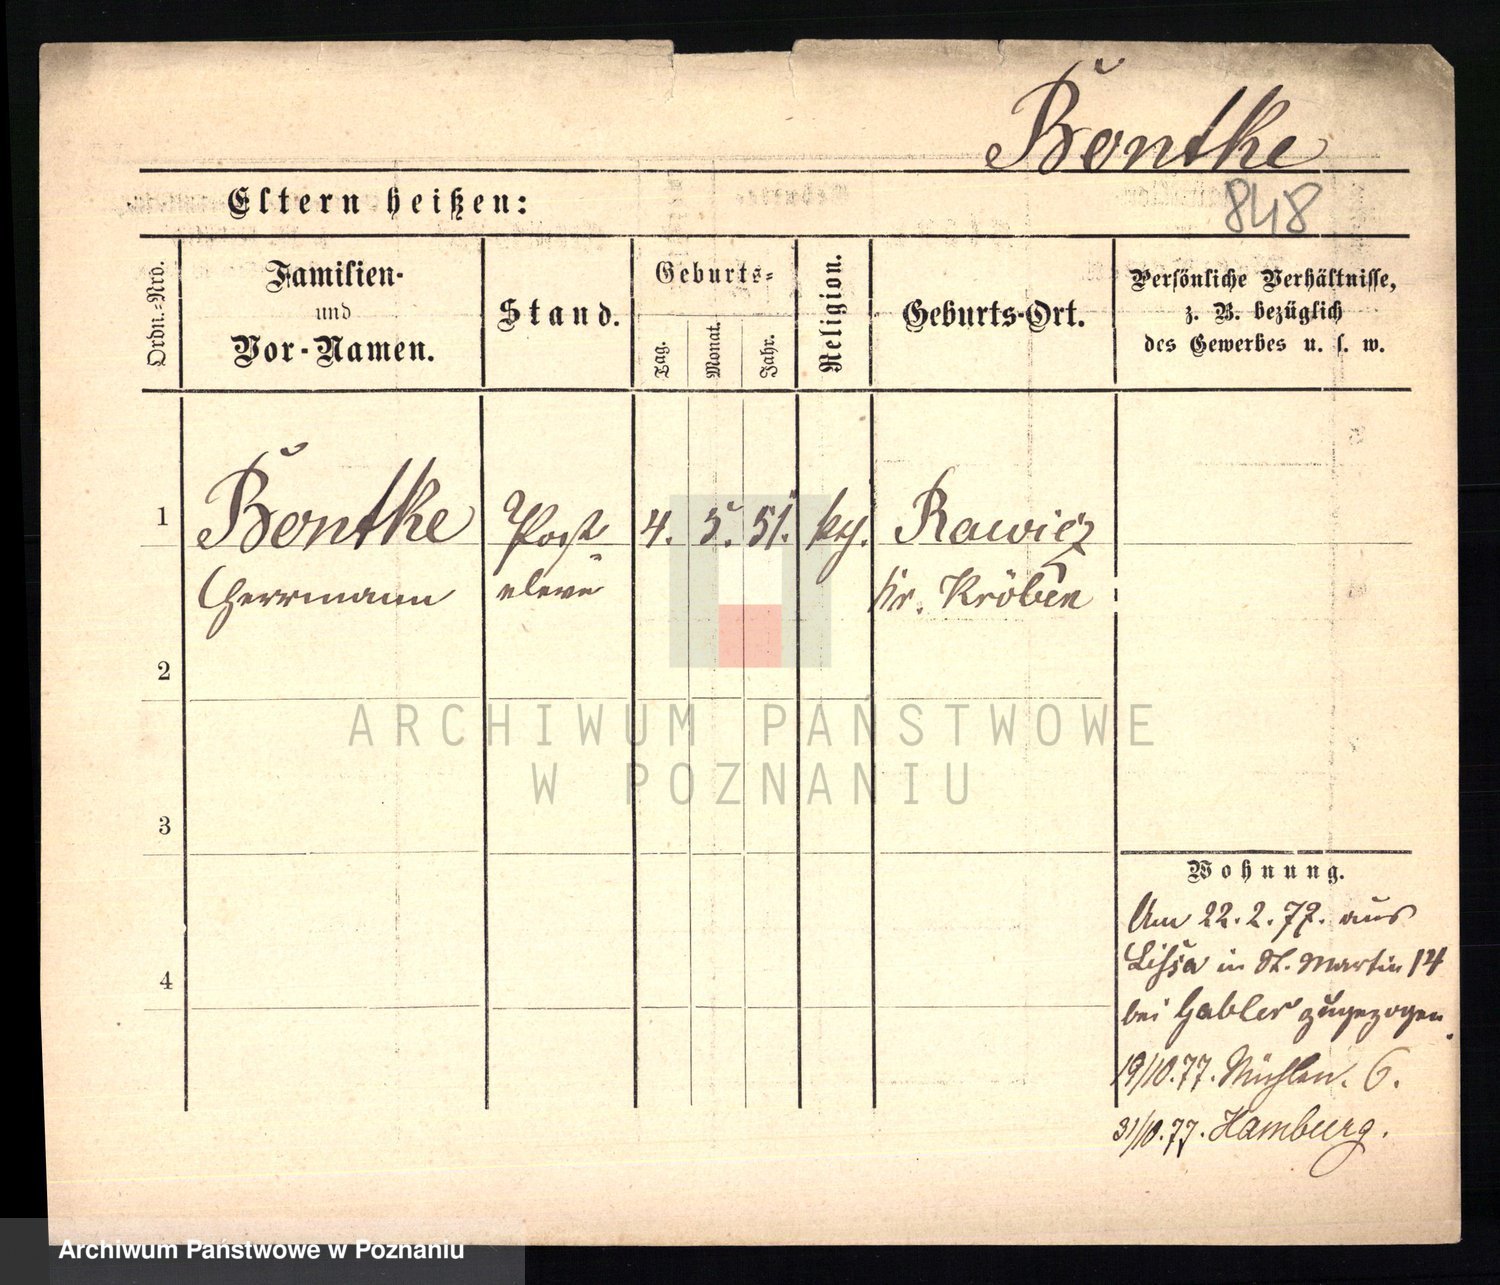 Bontke
848
Eltern heißen:
Ordn.-Nro.
Familien-
und
Vor-Namen.
Stand.
Geburts-
Tag.
Monat.
Jahr.
Religion.
Geburts-Ort.
Persönliche Verhältnisse,
z. B. bezüglich
des Gewerbes u. s. w.
1 Bontke Post 4. 5. 51. Rawicz
Herrmann eleve Kr. Kröben
2
3
4
Wohnung.
Am 22.2.77. aus
Lissa in St. Martin 14
bei Gabler zugezogen
19/10.77. Mühlen. 6.
31/10.77. Hamburg.
ARCHIWUM PAŃSTWOWE
W POZNANIU
Archiwum Państwowe w Poznaniu